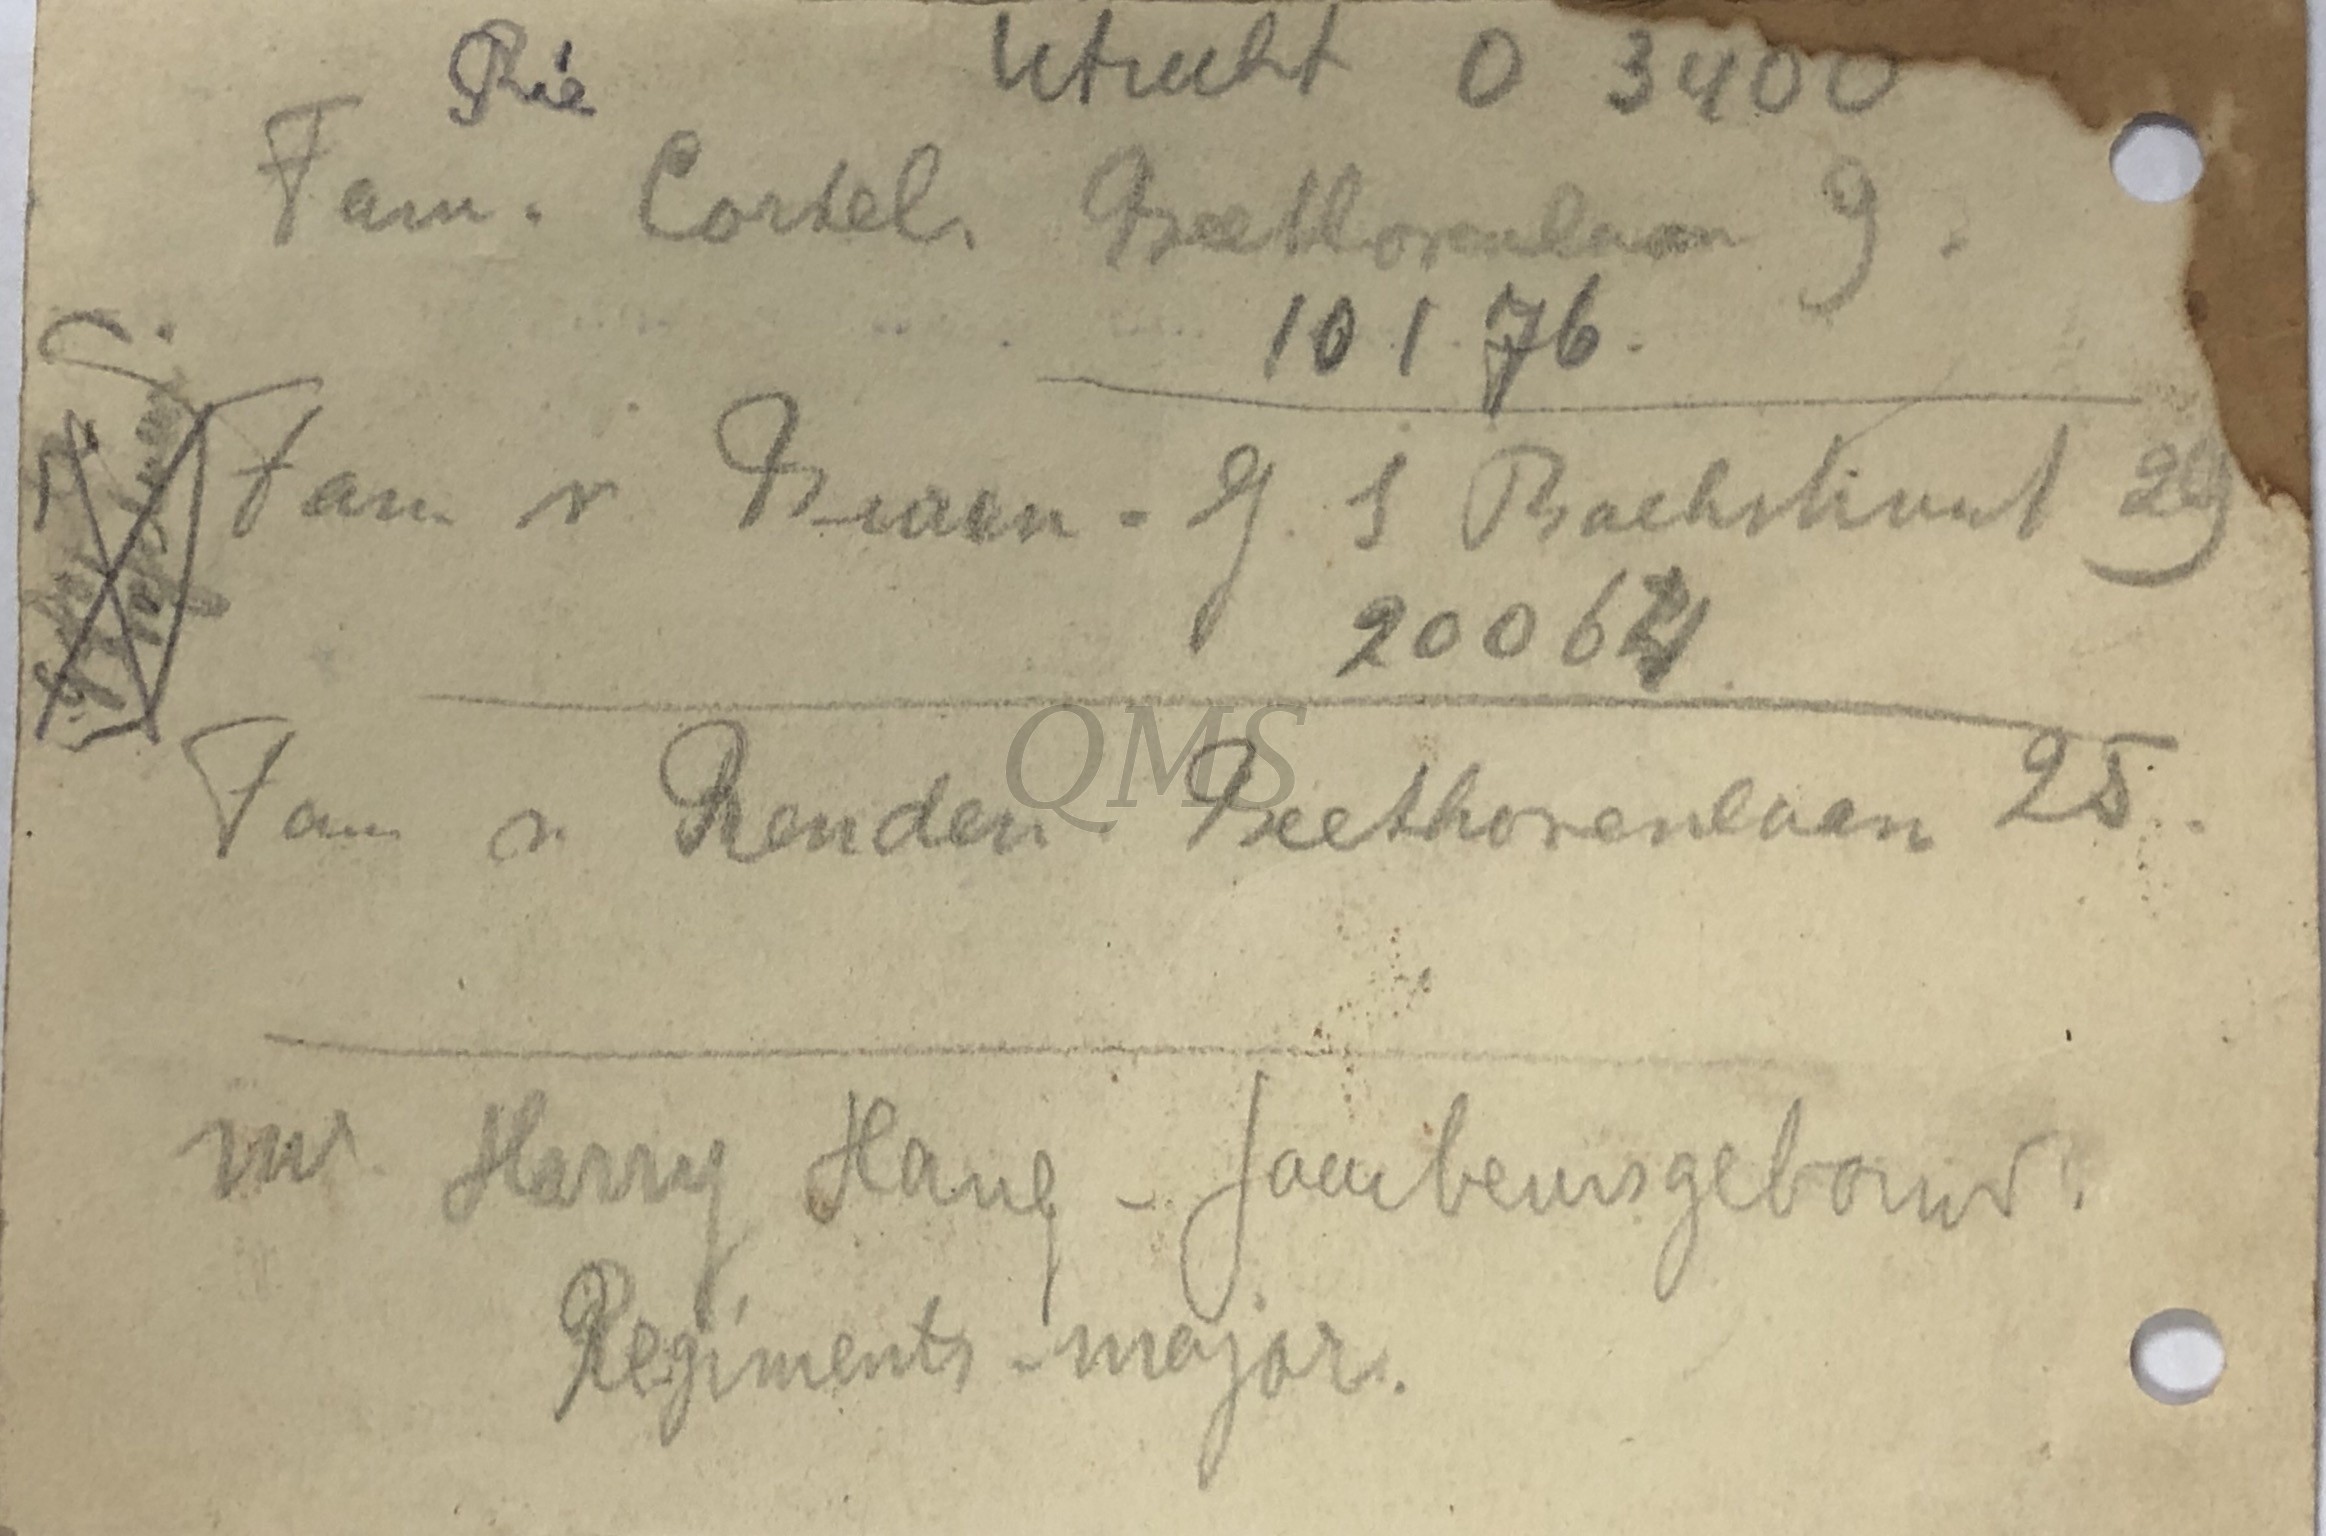 Rie
Utrecht 0 3400
Fam. Cortel. Beethovenlaan 9.
10176.
Fam v - J. S Bachstraat 29
Fam v. Renden Beethovenlaan 25.
QMS
Mr. Harry Haug - Jaarbeursgebouw.
Regiments-major.